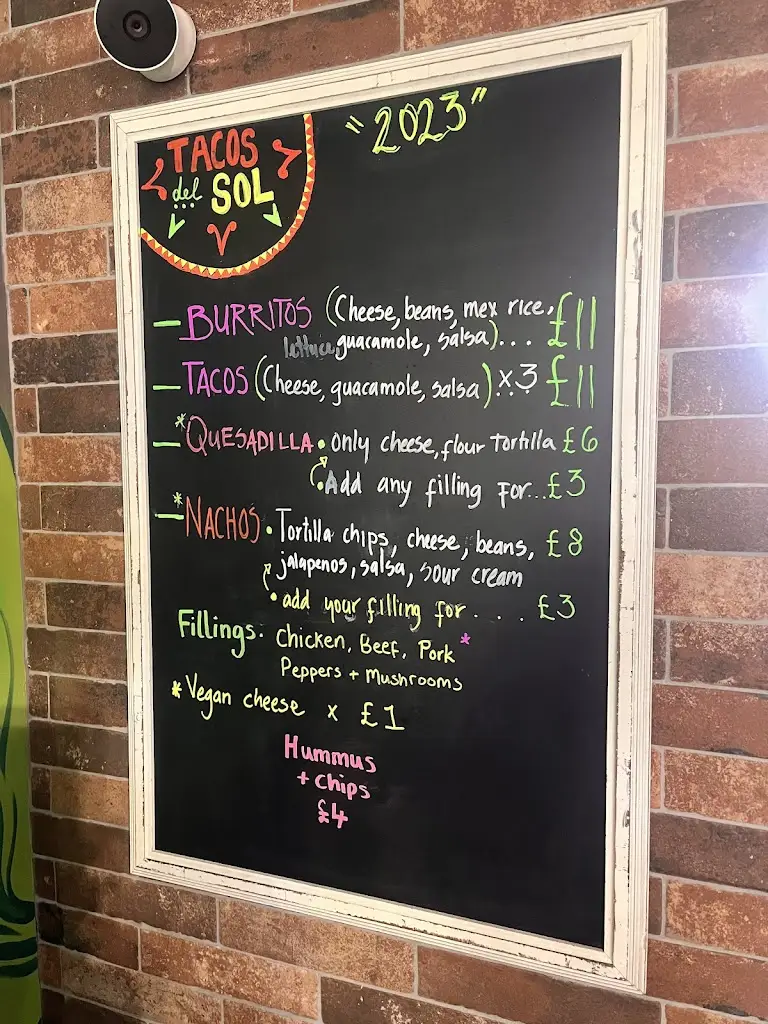 TACOS
del SOL
"2023"
- BURRITOS (Cheese, beans, mex rice, £11
lettuce guacamole, salsa)...
- TACOS (Cheese, guacamole, salsa) x3 £11
- *QUESADILLA • only cheese, flour Tortilla £6
• Add any filling for... £3
- *NACHOS • Tortilla chips, cheese, beans, £8
jalapenos, salsa, sour cream
• add your filling for . . . £3
Fillings. Chicken, Beef, Pork *
Peppers + Mushrooms
*Vegan cheese x £1
Hummus
+ chips
£4